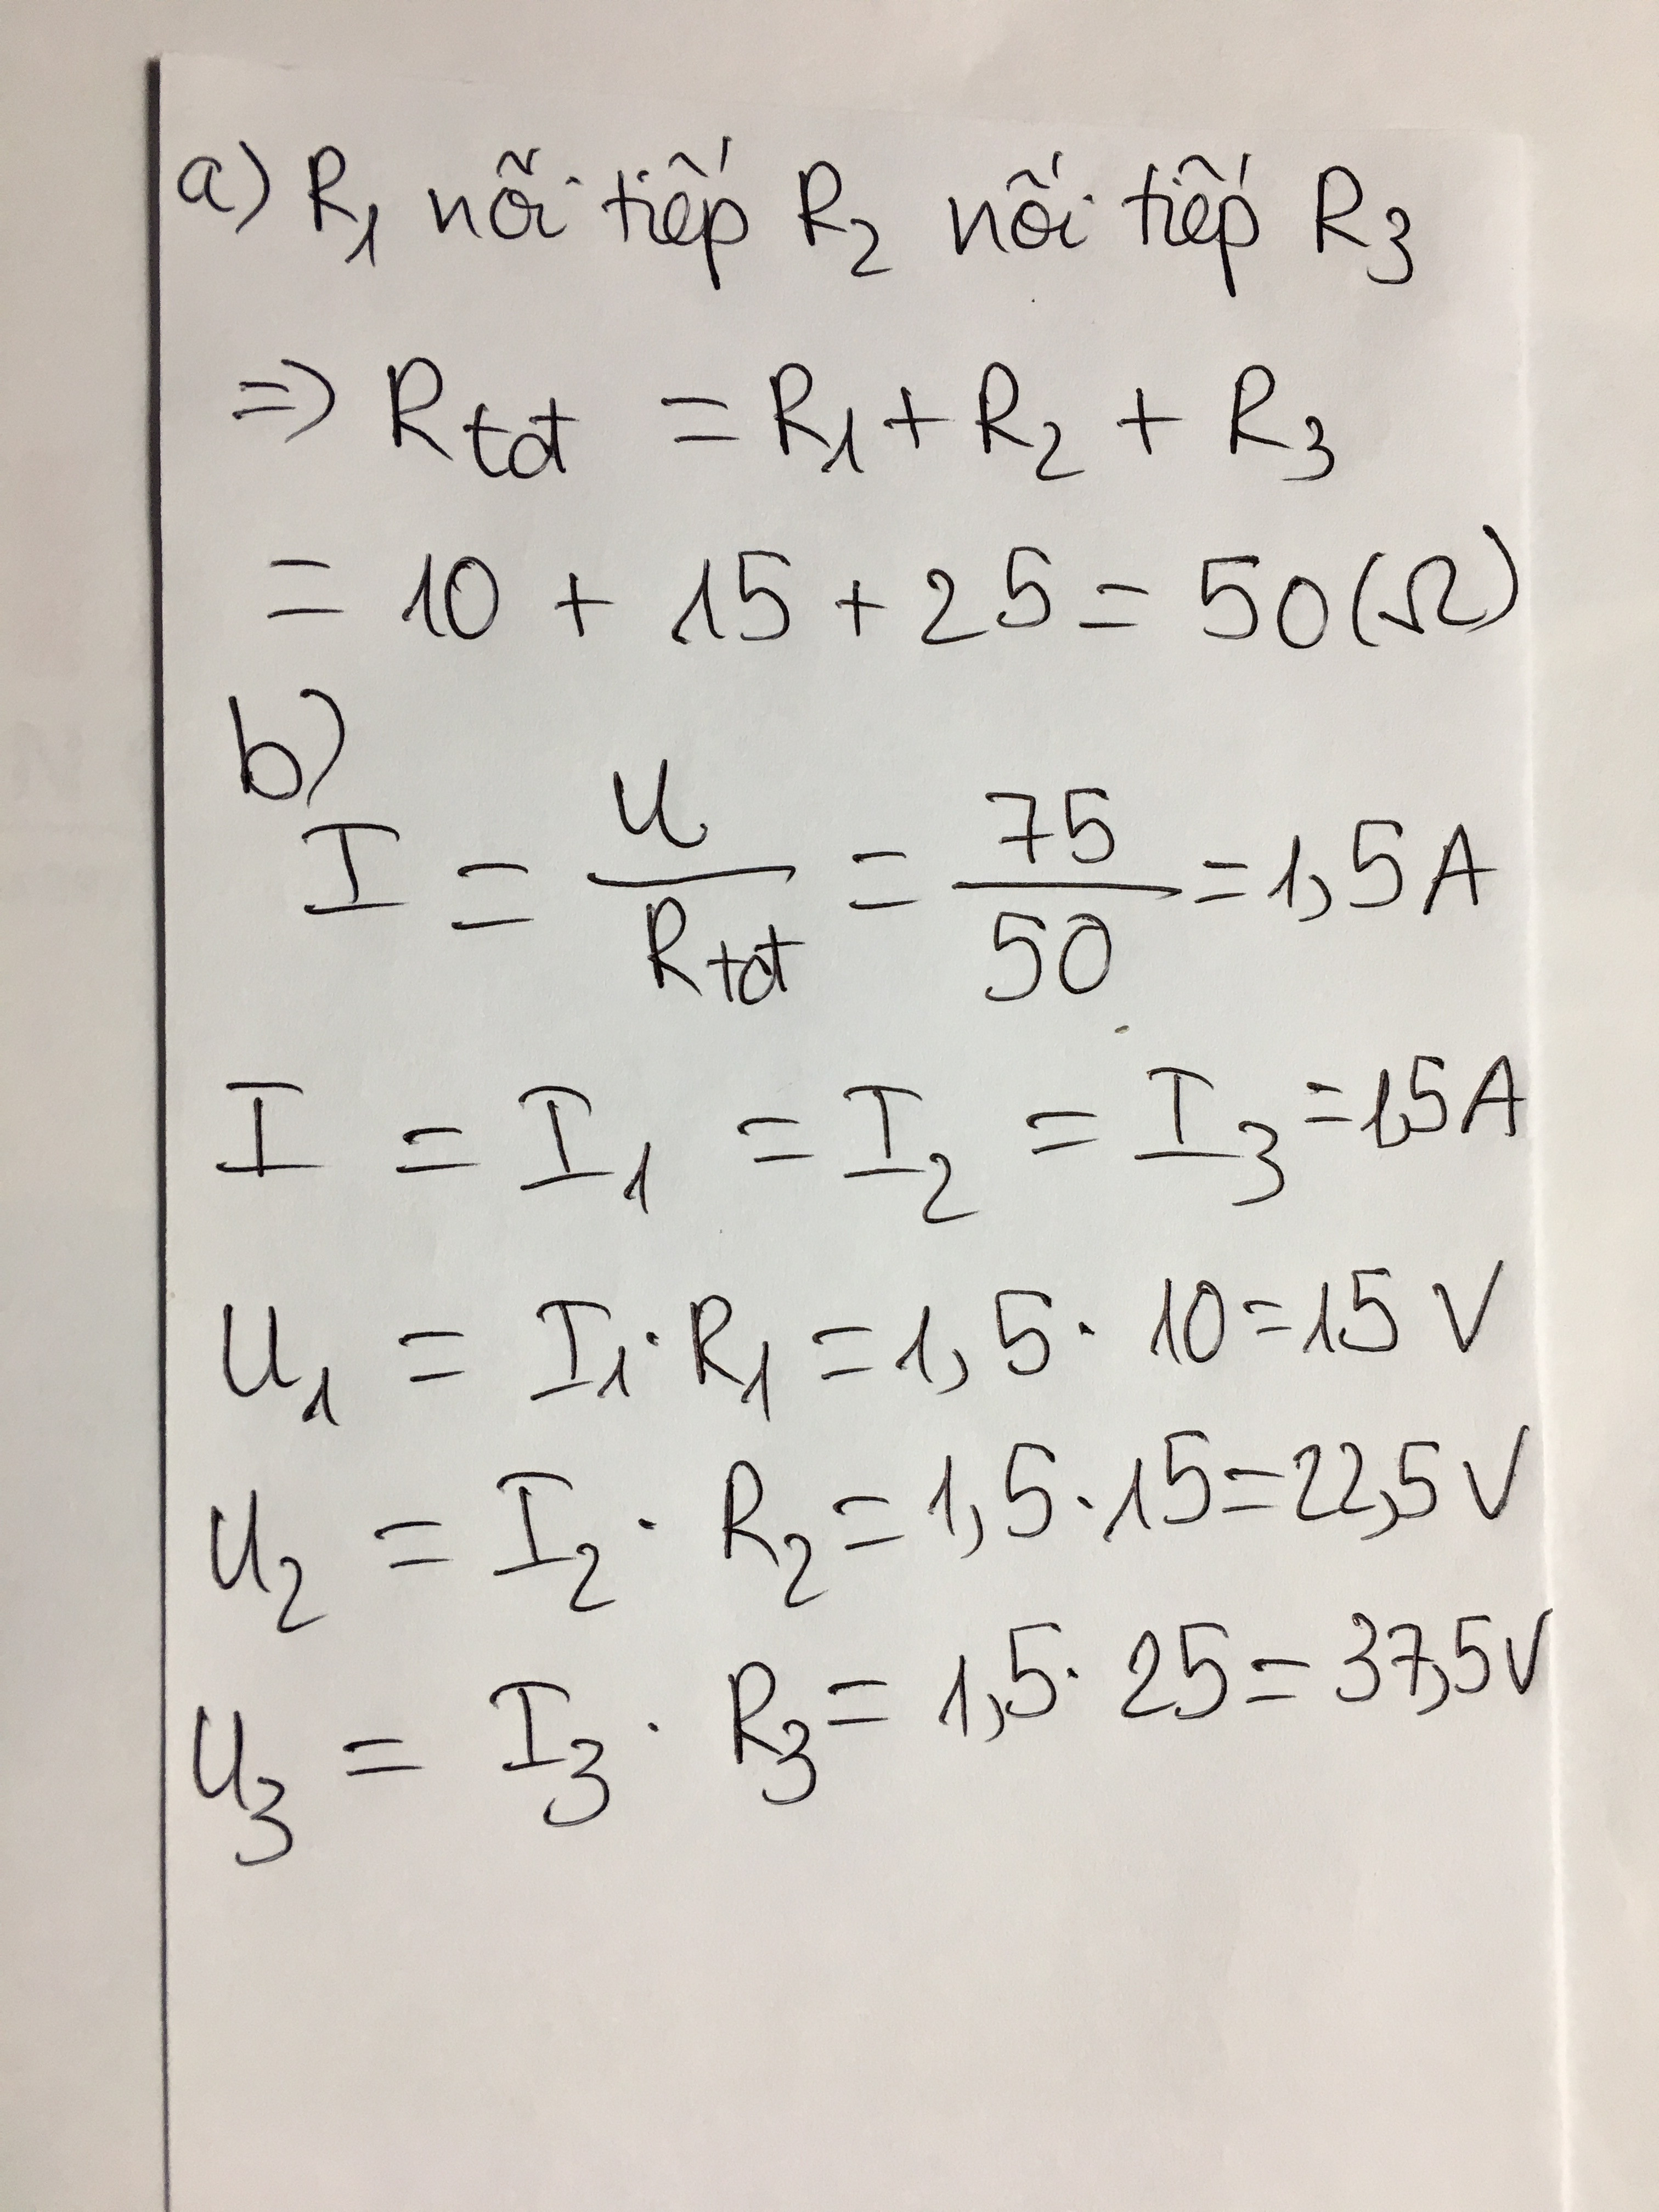 a) R₁ nối tiếp R₂ nối tiếp R₃
=> R_tot = R₁ + R₂ + R₃
= 10 + 15 + 25 = 50 (Ω)
b)
I = U / R_tot = 75 / 50 = 1,5 A
I = I₁ = I₂ = I₃ = 1,5 A
U₁ = I₁ · R₁ = 1,5 · 10 = 15 V
U₂ = I₂ · R₂ = 1,5 · 15 = 22,5 V
U₃ = I₃ · R₃ = 1,5 · 25 = 37,5 V